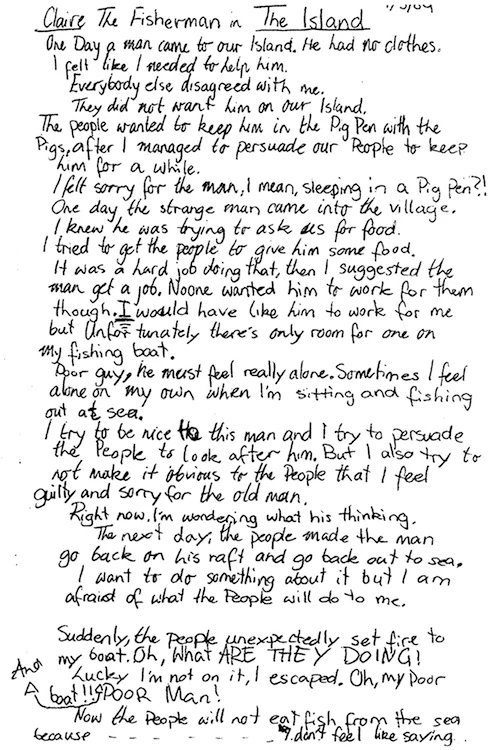 Claire The Fisherman in The Island
One Day a man came to our Island. He had no clothes.
I felt like I needed to help him.
Everybody else disagreed with me.
They did not want him on our Island.
The people wanted to keep him in the Pig Pen with the
Pigs, after I managed to persuade our People to keep
him for a while.
I felt sorry for the man, I mean, sleeping in a Pig Pen?!
One day the strange man came into the village.
I knew he was trying to ask us for food.
I tried to get the people to give him some food.
It was a hard job doing that, then I suggested the
man get a job. Noone wanted him to work for them
though. I would have like him to work for me
but Unfortunately there's only room for one on
my fishing boat.
Poor guy, he must feel really alone. Sometimes I feel
alone on my own when I'm sitting and fishing
out at sea.
I try to be nice to this man and I try to persuade
the People to look after him. But I also try to
not make it obvious to the People that I feel
guilty and sorry for the old man.
Right now, I'm wondering what his thinking.
The next day, the people made the man
go back on his raft and go back out to sea.
I want to do something about it but I am
afraid of what the People will do to me.
Suddenly, the people unexpectedly set fire to
my boat. Oh, What ARE THEY DOING!
Lucky I'm not on it, I escaped. Oh, my Poor
boat!!! And POOR Man!
Now the People will not eat fish from the sea
because - - - - - - - I don't feel like saying.